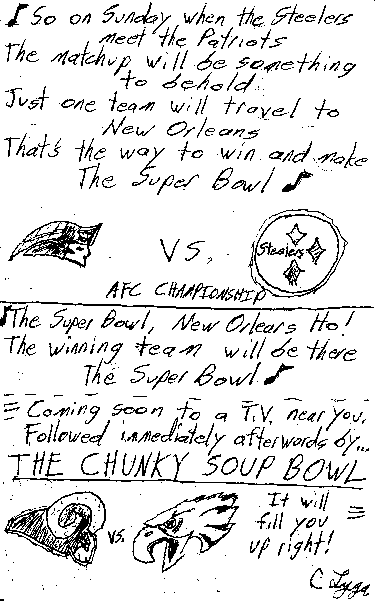 ♪ So on Sunday when the Steelers
meet the Patriots
The matchup will be something
to behold.
Just one team will travel to
New Orleans
That's the way to win and make
The Super Bowl ♪
VS.
Steelers
AFC CHAMPIONSHIP
♪ The Super Bowl, New Orleans Ho!
The winning team will be there
The Super Bowl ♪
Coming soon to a T.V. near you.
Followed immediately afterwords by...
THE CHUNKY SOUP BOWL
vs.
It will
fill you
up right!
C Lyga